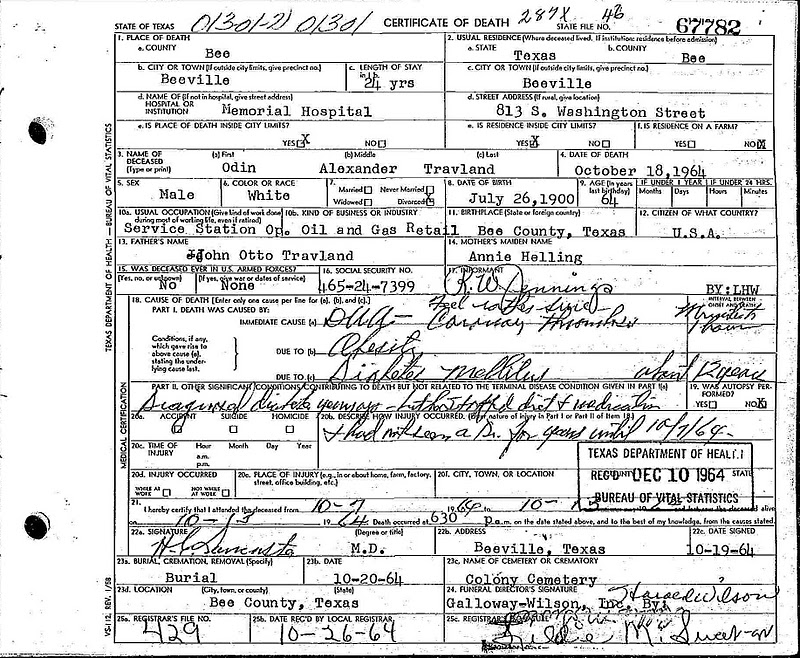 01301-21 01301 CERTIFICATE OF DEATH 287X 46
STATE OF TEXAS STATE FILE NO. 67782
1. PLACE OF DEATH 2. USUAL RESIDENCE (Where deceased lived. If institution: residence before admission)
a. COUNTY Bee a. STATE Texas b. COUNTY Bee
b. CITY OR TOWN (If outside city limits, give precinct no.) Beeville c. LENGTH OF STAY in 1 b. 24 yrs c. CITY OR TOWN (If outside city limits, give precinct no.) Beeville
d. NAME OF (If not in hospital, give street address) HOSPITAL OR INSTITUTION Memorial Hospital d. STREET ADDRESS (If rural, give location) 813 S. Washington Street
e. IS PLACE OF DEATH INSIDE CITY LIMITS? e. IS RESIDENCE INSIDE CITY LIMITS? f. IS RESIDENCE ON A FARM?
YES X NO YES X NO YES NO X
3. NAME OF DECEASED (Type or print) (a) First (b) Middle (c) Last 4. DATE OF DEATH
Odin Alexander Travland October 18, 1964
5. SEX 6. COLOR OR RACE 7. Married Never Married Widowed Divorced 8. DATE OF BIRTH 9. AGE (In years last birthday) IF UNDER 1 YEAR IF UNDER 24 HRS.
Months Days Hours Minutes
Male White July 26, 1900 64
10a. USUAL OCCUPATION (Give kind of work done during most of working life, even if retired) 10b. KIND OF BUSINESS OR INDUSTRY 11. BIRTHPLACE (State or foreign country) 12. CITIZEN OF WHAT COUNTRY?
Service Station Op. Oil and Gas Retail Bee County, Texas U.S.A.
13. FATHER'S NAME 14. MOTHER'S MAIDEN NAME
John Otto Travland Annie Helling
15. WAS DECEASED EVER IN U.S. ARMED FORCES? 16. SOCIAL SECURITY NO. 17. INFORMANT
(Yes, no, or unknown) (If yes, give war or dates of service)
No None 465-24-7399 R.W. Jennings BY: LHW
18. CAUSE OF DEATH [Enter only one cause per line for (a), (b), and (c).] INTERVAL BETWEEN ONSET AND DEATH
PART I. DEATH WAS CAUSED BY:
IMMEDIATE CAUSE (a) Coronary Thrombosis
Conditions, if any, which gave rise to above cause (a), stating the underlying cause last.
DUE TO (b) Obesity
DUE TO (c) Diabetes Mellitus about 12 years
PART II. OTHER SIGNIFICANT CONDITIONS CONTRIBUTING TO DEATH BUT NOT RELATED TO THE TERMINAL DISEASE CONDITION GIVEN IN PART I(a) 19. WAS AUTOPSY PERFORMED?
Diagnosed diabetes years ago but had stopped diet & medication YES NO X
20a. ACCIDENT SUICIDE HOMICIDE 20b. DESCRIBE HOW INJURY OCCURRED. (Enter nature of injury in Part I or Part II of Item 18.)
& had not seen a Dr. for years until 10/7/64
20c. TIME OF INJURY Hour Month Day Year
a.m.
p.m.
20d. INJURY OCCURRED WHILE AT WORK NOT WHILE AT WORK 20e. PLACE OF INJURY (e.g., in or about home, farm, factory, street, office building, etc.) 20f. CITY, TOWN, OR LOCATION COUNTY STATE
TEXAS DEPARTMENT OF HEALTH
REC'D DEC 10 1964
BUREAU OF VITAL STATISTICS
21. I hereby certify that I attended the deceased from 10-7 1964 to 10-
on 10-15 1964 Death occurred at 630 p.m. on the date stated above, and to the best of my knowledge, from the causes stated.
22a. SIGNATURE (Degree or title) M.D. 22b. ADDRESS Beeville, Texas 22c. DATE SIGNED 10-19-64
23a. BURIAL, CREMATION, REMOVAL (Specify) Burial 23b. DATE 10-20-64 23c. NAME OF CEMETERY OR CREMATORY Colony Cemetery
23d. LOCATION (City, town, or county) (State) 24. FUNERAL DIRECTOR'S SIGNATURE Harold Wilson
Bee County, Texas Galloway-Wilson, Inc. By:
25a. REGISTRAR'S FILE NO. 429 25b. DATE REC'D BY LOCAL REGISTRAR 10-26-64 25c. REGISTRAR'S
TEXAS DEPARTMENT OF HEALTH — BUREAU OF VITAL STATISTICS
MEDICAL CERTIFICATION
VS-112, REV. 1/58